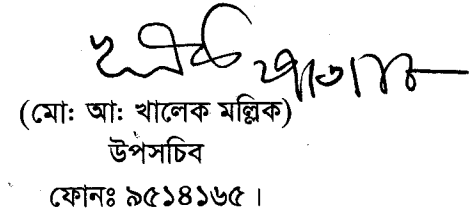 (মো: আ: খালেক মল্লিক)
উপসচিব
ফোনঃ ৯৫১৪১৬৫।